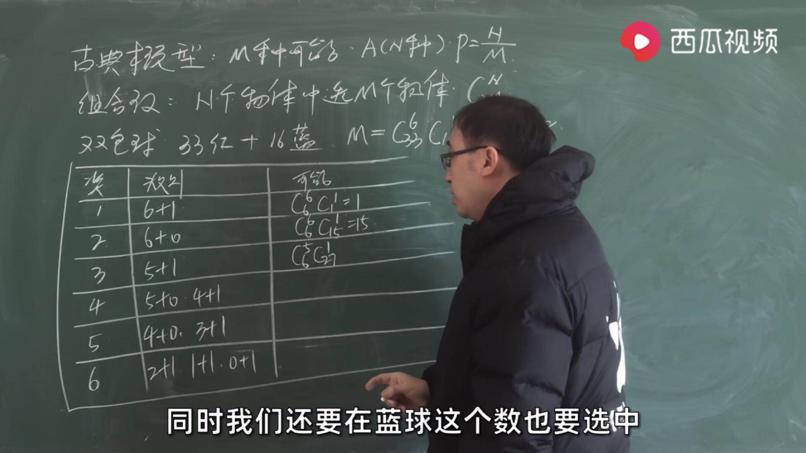 西瓜视频
古典概型：M种可能．A(N种) P=N/M
组合数：N个物体中选M个物体．
双色球 33红+16蓝 M=C₃₃⁶C
奖 可能
1 6+1 C₆⁶C₁¹=1
2 6+0 C₆⁶C₁₅¹=15
3 5+1 C₆⁵C₂₇¹
4 5+0．4+1
5 4+0．3+1
6 2+1 1+1．0+1
同时我们还要在蓝球这个数也要选中